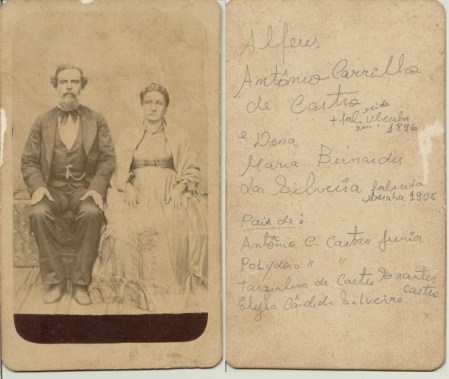 Alferes
Antônio Carrilho
de Castro
+ fal. Uberaba
em 1896
e Dona
Maria Bernardes
da Silveira falecida
Uberaba 1905
Pais de:
Antônio C. Castro Junior
Polydoro " "
de Castro Soares
Castro
Elysa Cândida Silveira